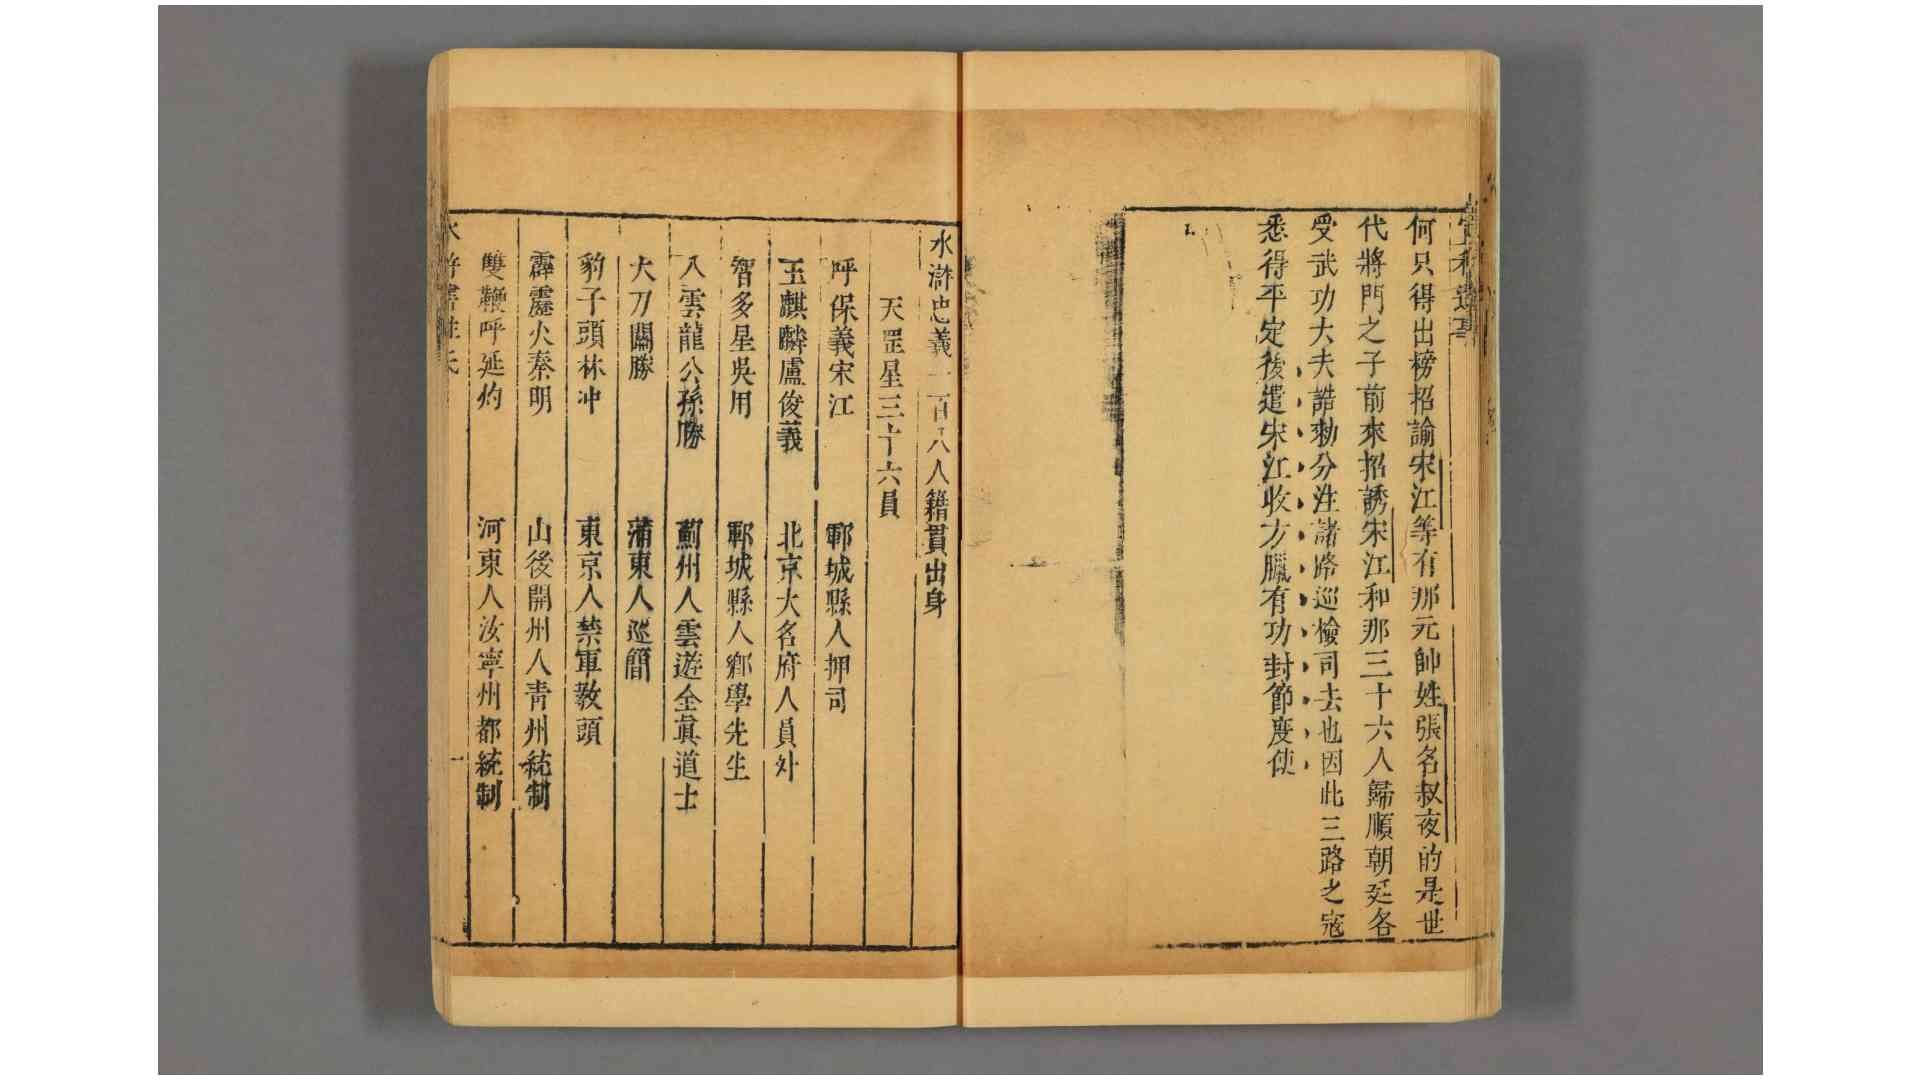 宣和遺事
何只得出榜招諭宋江等有那元帥姓張名叔夜的是世
代將門之子前來招誘宋江和那三十六人歸順朝廷各
受武功大夫誥勑分注諸路巡檢司去也因此三路之寇
悉得平定後遣宋江收方臘有功封節度使
水滸忠義一百八人籍貫出身
天罡星三十六員
呼保義宋江 鄆城縣人押司
玉麒麟盧俊義 北京大名府人員外
智多星吳用 鄆城縣人鄉學先生
入雲龍公孫勝 薊州人雲遊全眞道士
大刀關勝 蒲東人巡簡
豹子頭林冲 東京人禁軍敎頭
霹靂火秦明 山後開州人青州統制
雙鞭呼延灼 河東人汝寧州都統制
水滸書姓氏 一